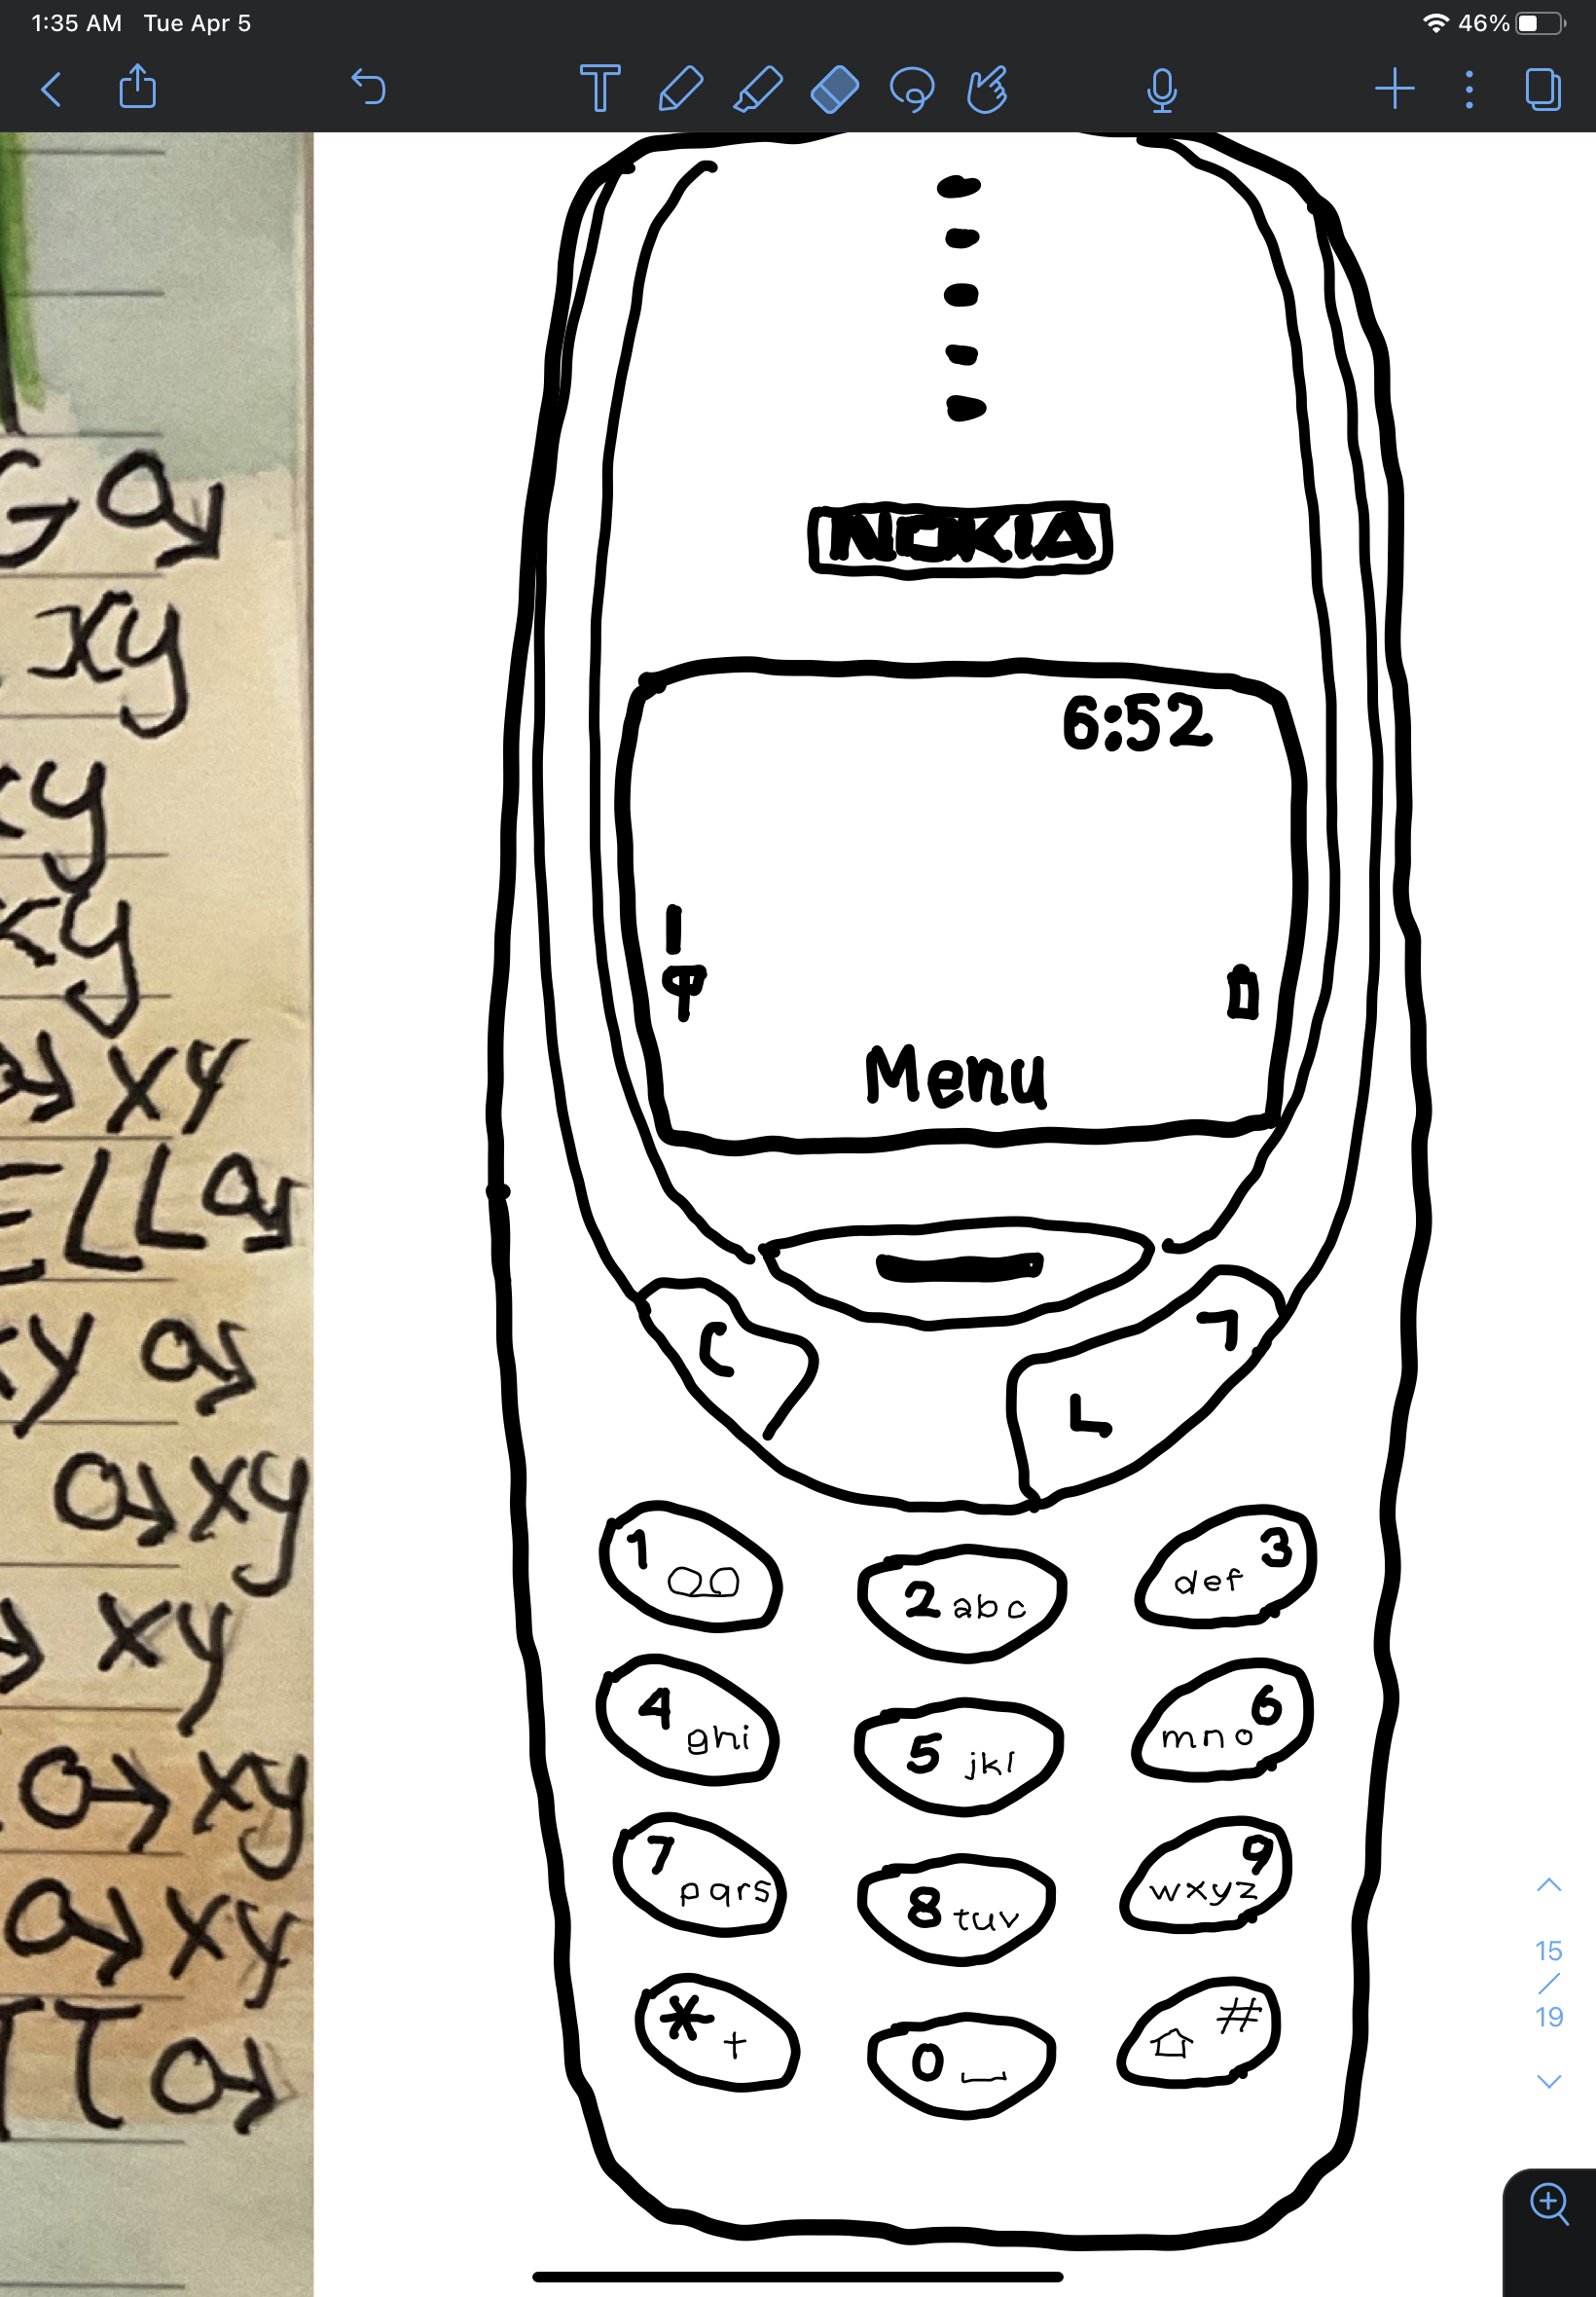 1:35 AM Tue Apr 5
46%
GO
xy
xy
xy
xy
ELLO
xy
xy
xy
xy
xy
NOKIA
6:52
Menu
C
1
2 abc
def 3
4 ghi
5 jkl
mno 6
7 pqrs
8 tuv
wxyz 9
* +
0
#
15
/
19